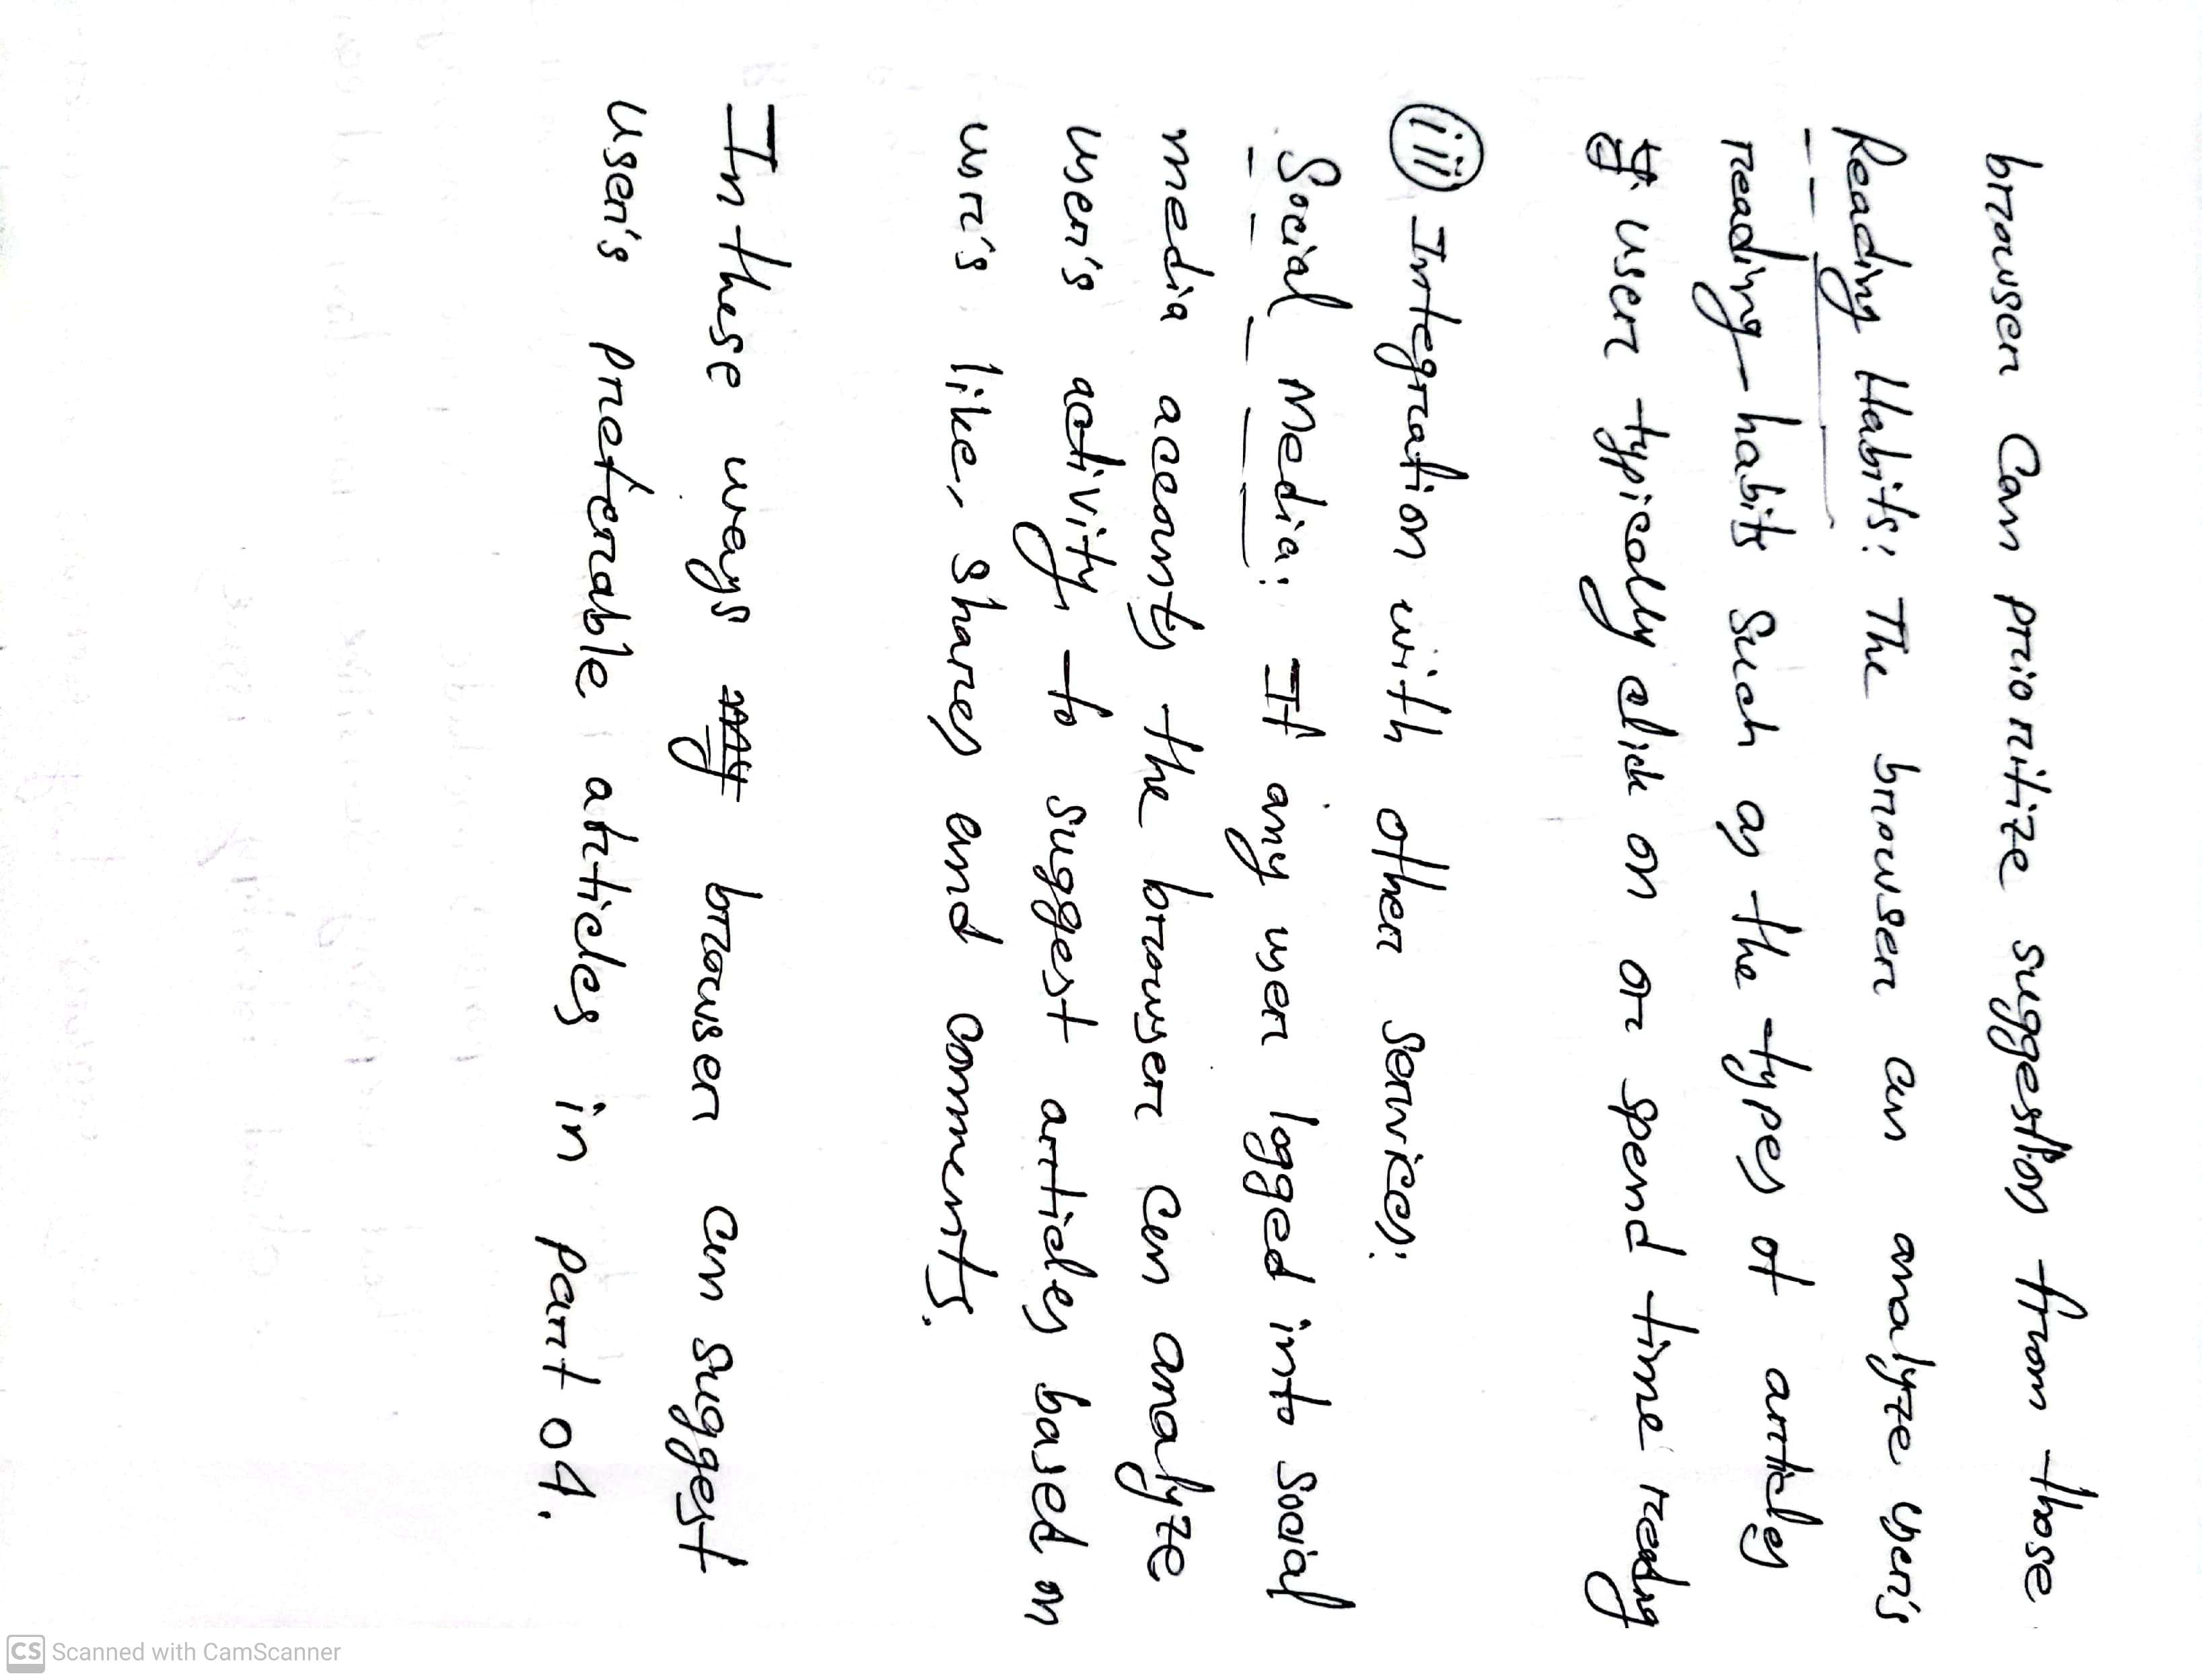 browser Can prioritize suggestions from those
Reading Habits: The browser can analyze user's
reading habits such as the types of articles
user typically click on or spend time reading
(iii) Integration with other services:
Social Media: If any user logged into social
media accounts the browser can analyze
user's activity to suggest articles based on
user's like, shares and comments.
In these ways browser can suggest
user's preferable articles in part 04.
CS Scanned with CamScanner